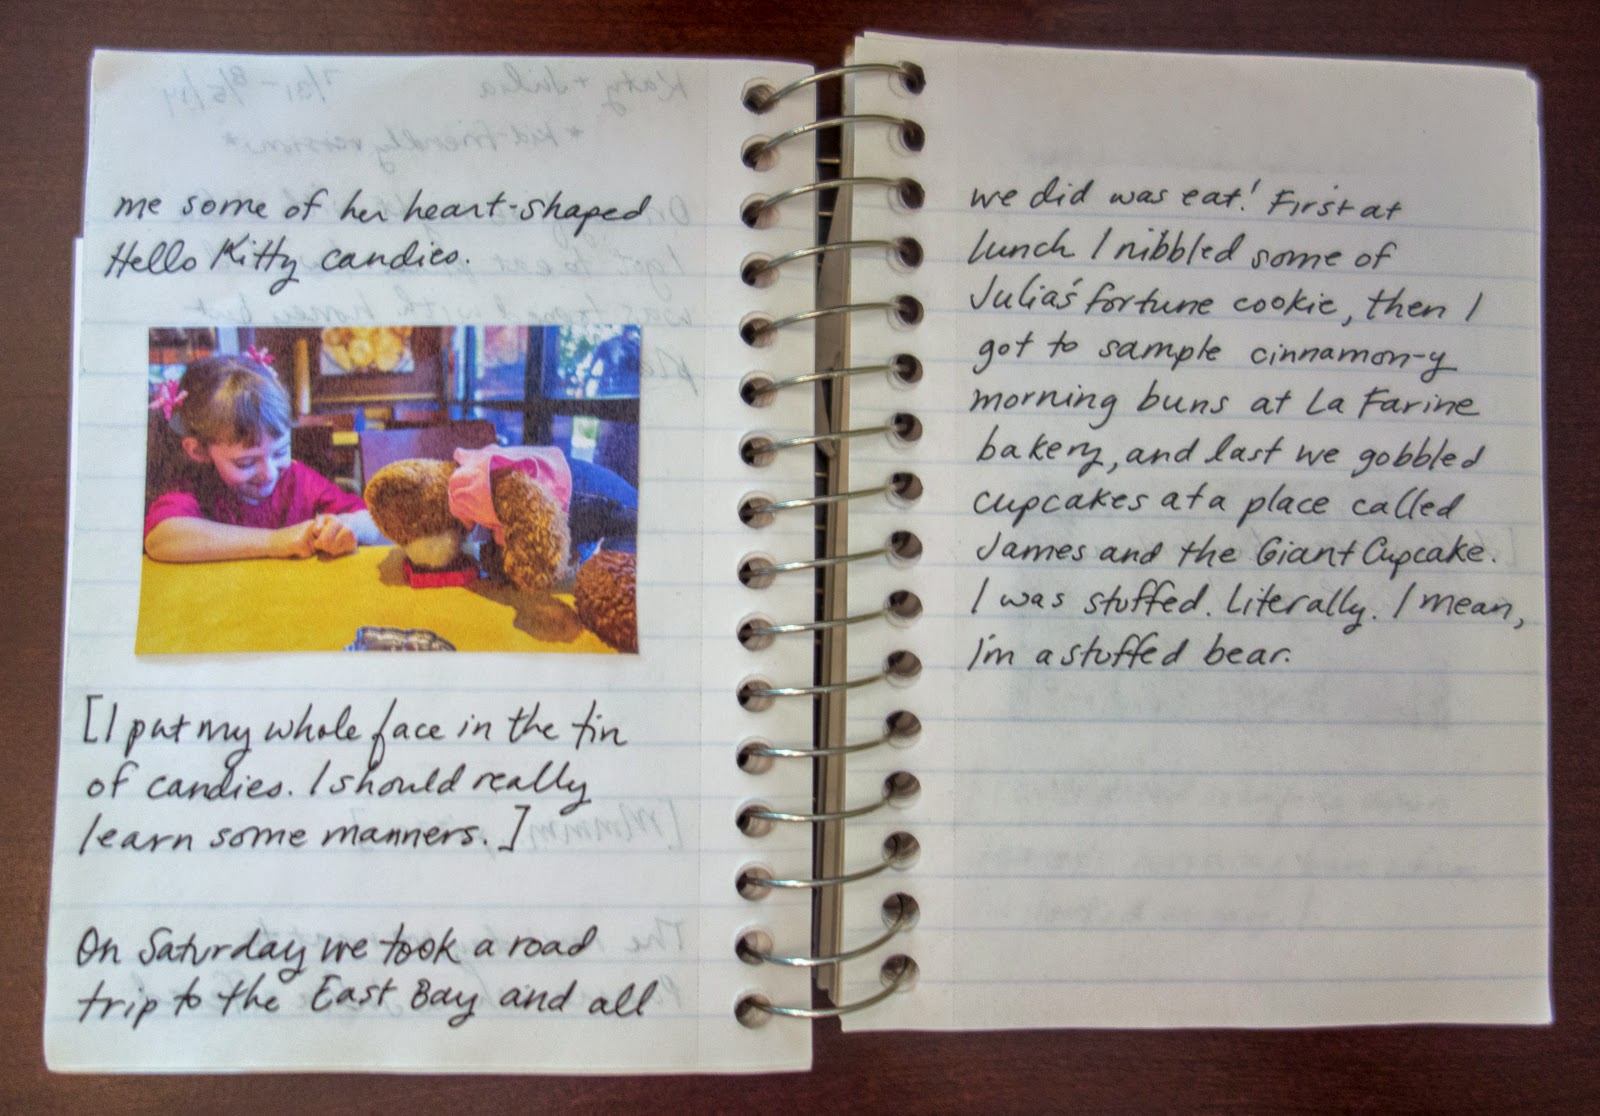 me some of her heart-shaped
Hello Kitty candies.
[I put my whole face in the tin
of candies. I should really
learn some manners.]
On Saturday we took a road
trip to the East Bay and all
we did was eat! First at
lunch I nibbled some of
Julia's fortune cookie, then I
got to sample cinnamon-y
morning buns at La Farine
bakery, and last we gobbled
cupcakes at a place called
James and the Giant Cupcake.
I was stuffed. Literally. I mean,
I'm a stuffed bear.
Katy + Julia 7/31-8/5/14
*kid-friendly version*